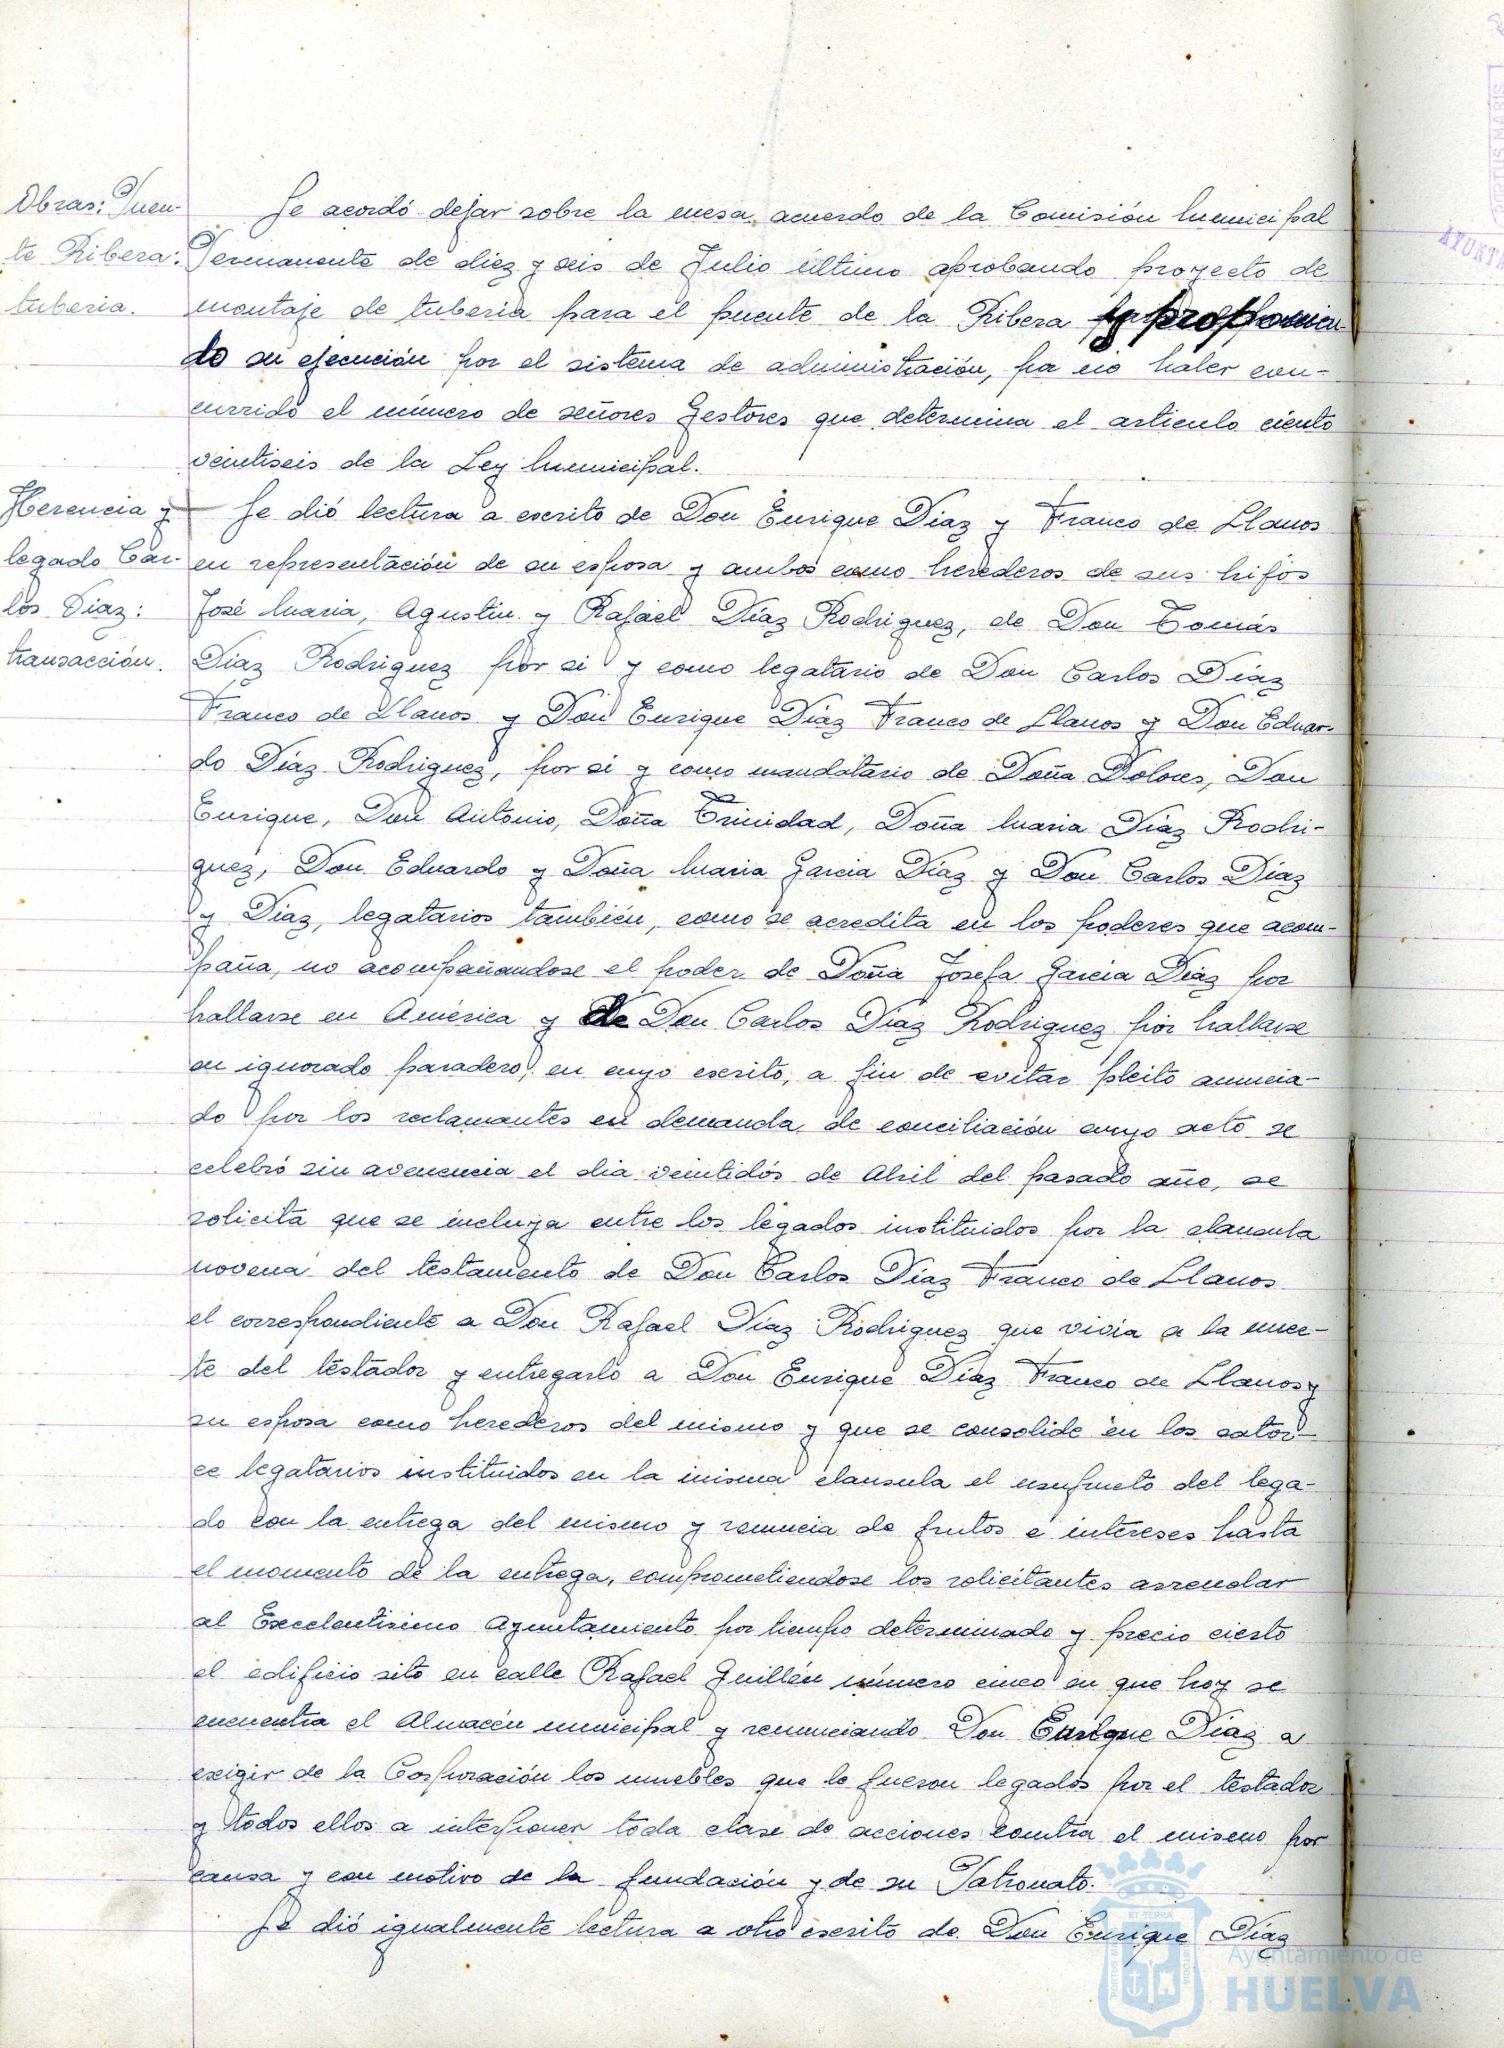 Obras: Puen-
te Ribera:
tuberia.
Se acordó dejar sobre la mesa acuerdo de la Comisión Municipal
Permanente de diez y seis de Julio último aprobando proyecto de
montaje de tuberia para el puente de la Ribera y proponien-
do su ejecución por el sistema de administración, por no haber con-
currido el número de señores Gestores que determina el articulo ciento
veintiseis de la Ley Municipal.
Herencia y
legado Car-
los Diaz:
transacción.
Se dió lectura a escrito de Don Enrique Díaz y Franco de Llanos
en representación de su esposa y ambos como herederos de sus hijos
José Maria, Agustin y Rafael Díaz Rodriguez, de Don Tomás
Diaz Rodriguez por si y como legatario de Don Carlos Díaz
Franco de Llanos y Don Enrique Díaz Franco de Llanos y Don Eduar-
do Díaz Rodriguez, por si y como mandatario de Doña Dolores, Don
Enrique, Don Antonio, Doña Trinidad, Doña Maria Díaz Rodri-
guez, Don Eduardo y Doña Maria Garcia Díaz y Don Carlos Díaz
y Díaz, legatarios también, como se acredita en los poderes que acom-
paña, no acompañandose el poder de Doña Josefa Garcia Díaz por
hallarse en América y de Don Carlos Díaz Rodriguez por hallarse
en ignorado paradero, en cuyo escrito, a fin de evitar pleito anuncia-
do por los reclamantes en demanda de conciliación cuyo acto se
celebró sin avenencia el dia veintidós de Abril del pasado año, se
solicita que se incluya entre los legados instituidos por la clausula
novena del testamento de Don Carlos Díaz Franco de Llanos
el correspondiente a Don Rafael Díaz Rodriguez que vivia a la muer-
te del testador y entregarlo a Don Enrique Díaz Franco de Llanos y
su esposa como herederos del mismo y que se consolide en los cator-
ce legatarios instituidos en la misma clausula el usufructo del lega-
do con la entrega del mismo y renuncia de frutos e intereses hasta
el momento de la entrega, comprometiendose los solicitantes arrendar
al Excelentisimo Ayuntamiento por tiempo determinado y precio cierto
el edificio sito en calle Rafael Guillén número cinco en que hoy se
encuentra el Almacén municipal y renunciando Don Enrique Díaz a
exigir de la Corporación los muebles que le fueron legados por el testador
y todos ellos a interponer toda clase de acciones contra el mismo por
causa y con motivo de la fundación y de su Patronato.
Se dió igualmente lectura a otro escrito de Don Enrique Díaz
Ayuntamiento de
HUELVA